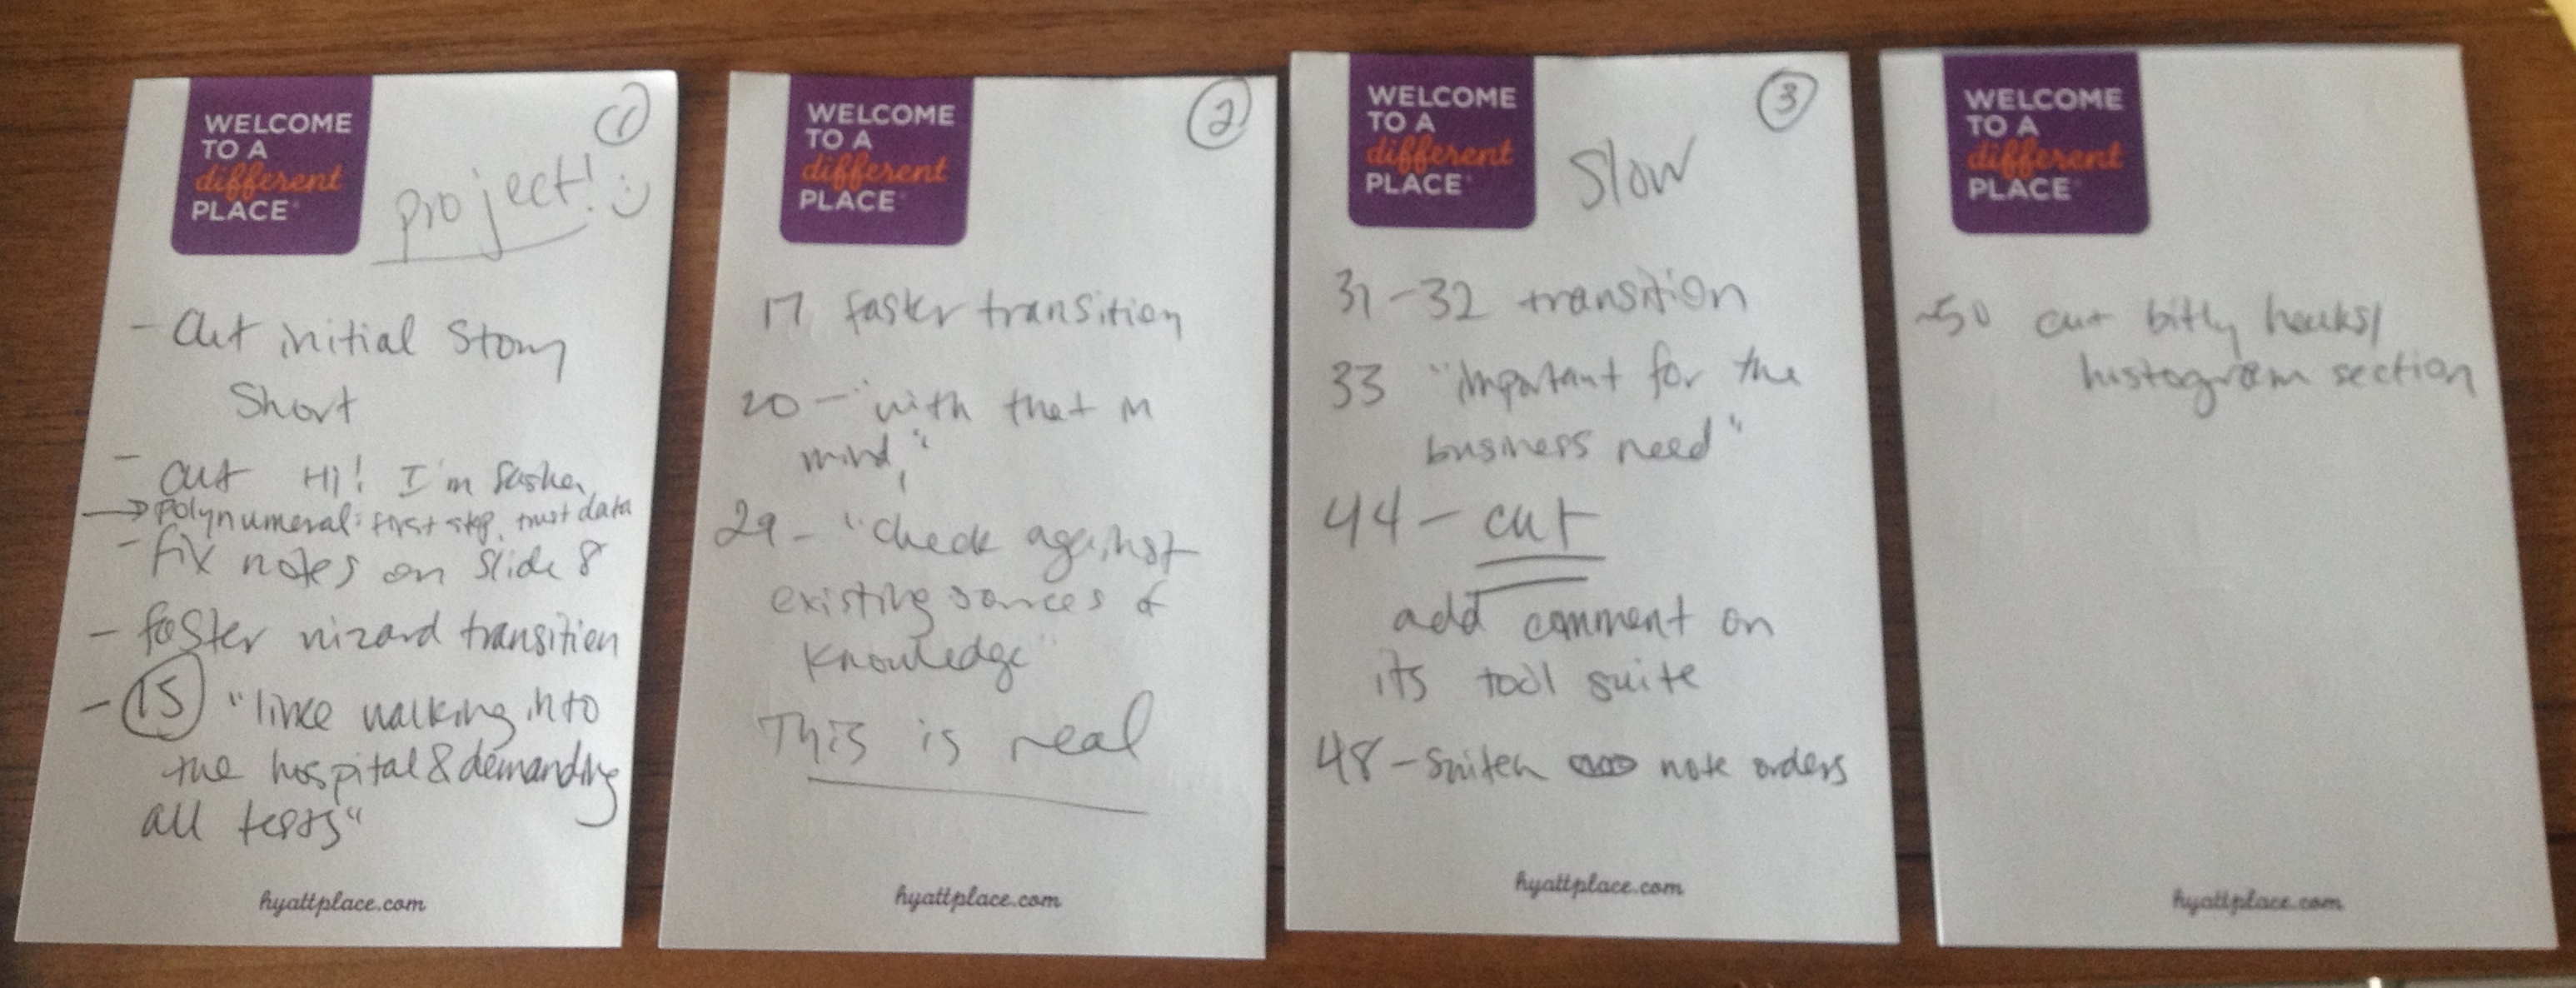 WELCOME
TO A
different
PLACE
1
project! :)
- cut initial story
short
- cut Hi! I'm Sasha,
→ polynumeral: first step, trust data
- fix notes on slide 8
- faster wizard transition
- 15 "like walking into
the hospital & demanding
all tests"
hyattplace.com
WELCOME
TO A
different
PLACE
2
17 faster transition
20 - "with that in
mind,"
29 - "check against
existing sources of
knowledge"
This is real
hyattplace.com
WELCOME
TO A
different
PLACE
3
Slow
31-32 transition
33 "important for the
business need"
44 - cut
add comment on
its tool suite
48 - switch note orders
hyattplace.com
WELCOME
TO A
different
PLACE
~50 cut bitly
histogram section
hyattplace.com